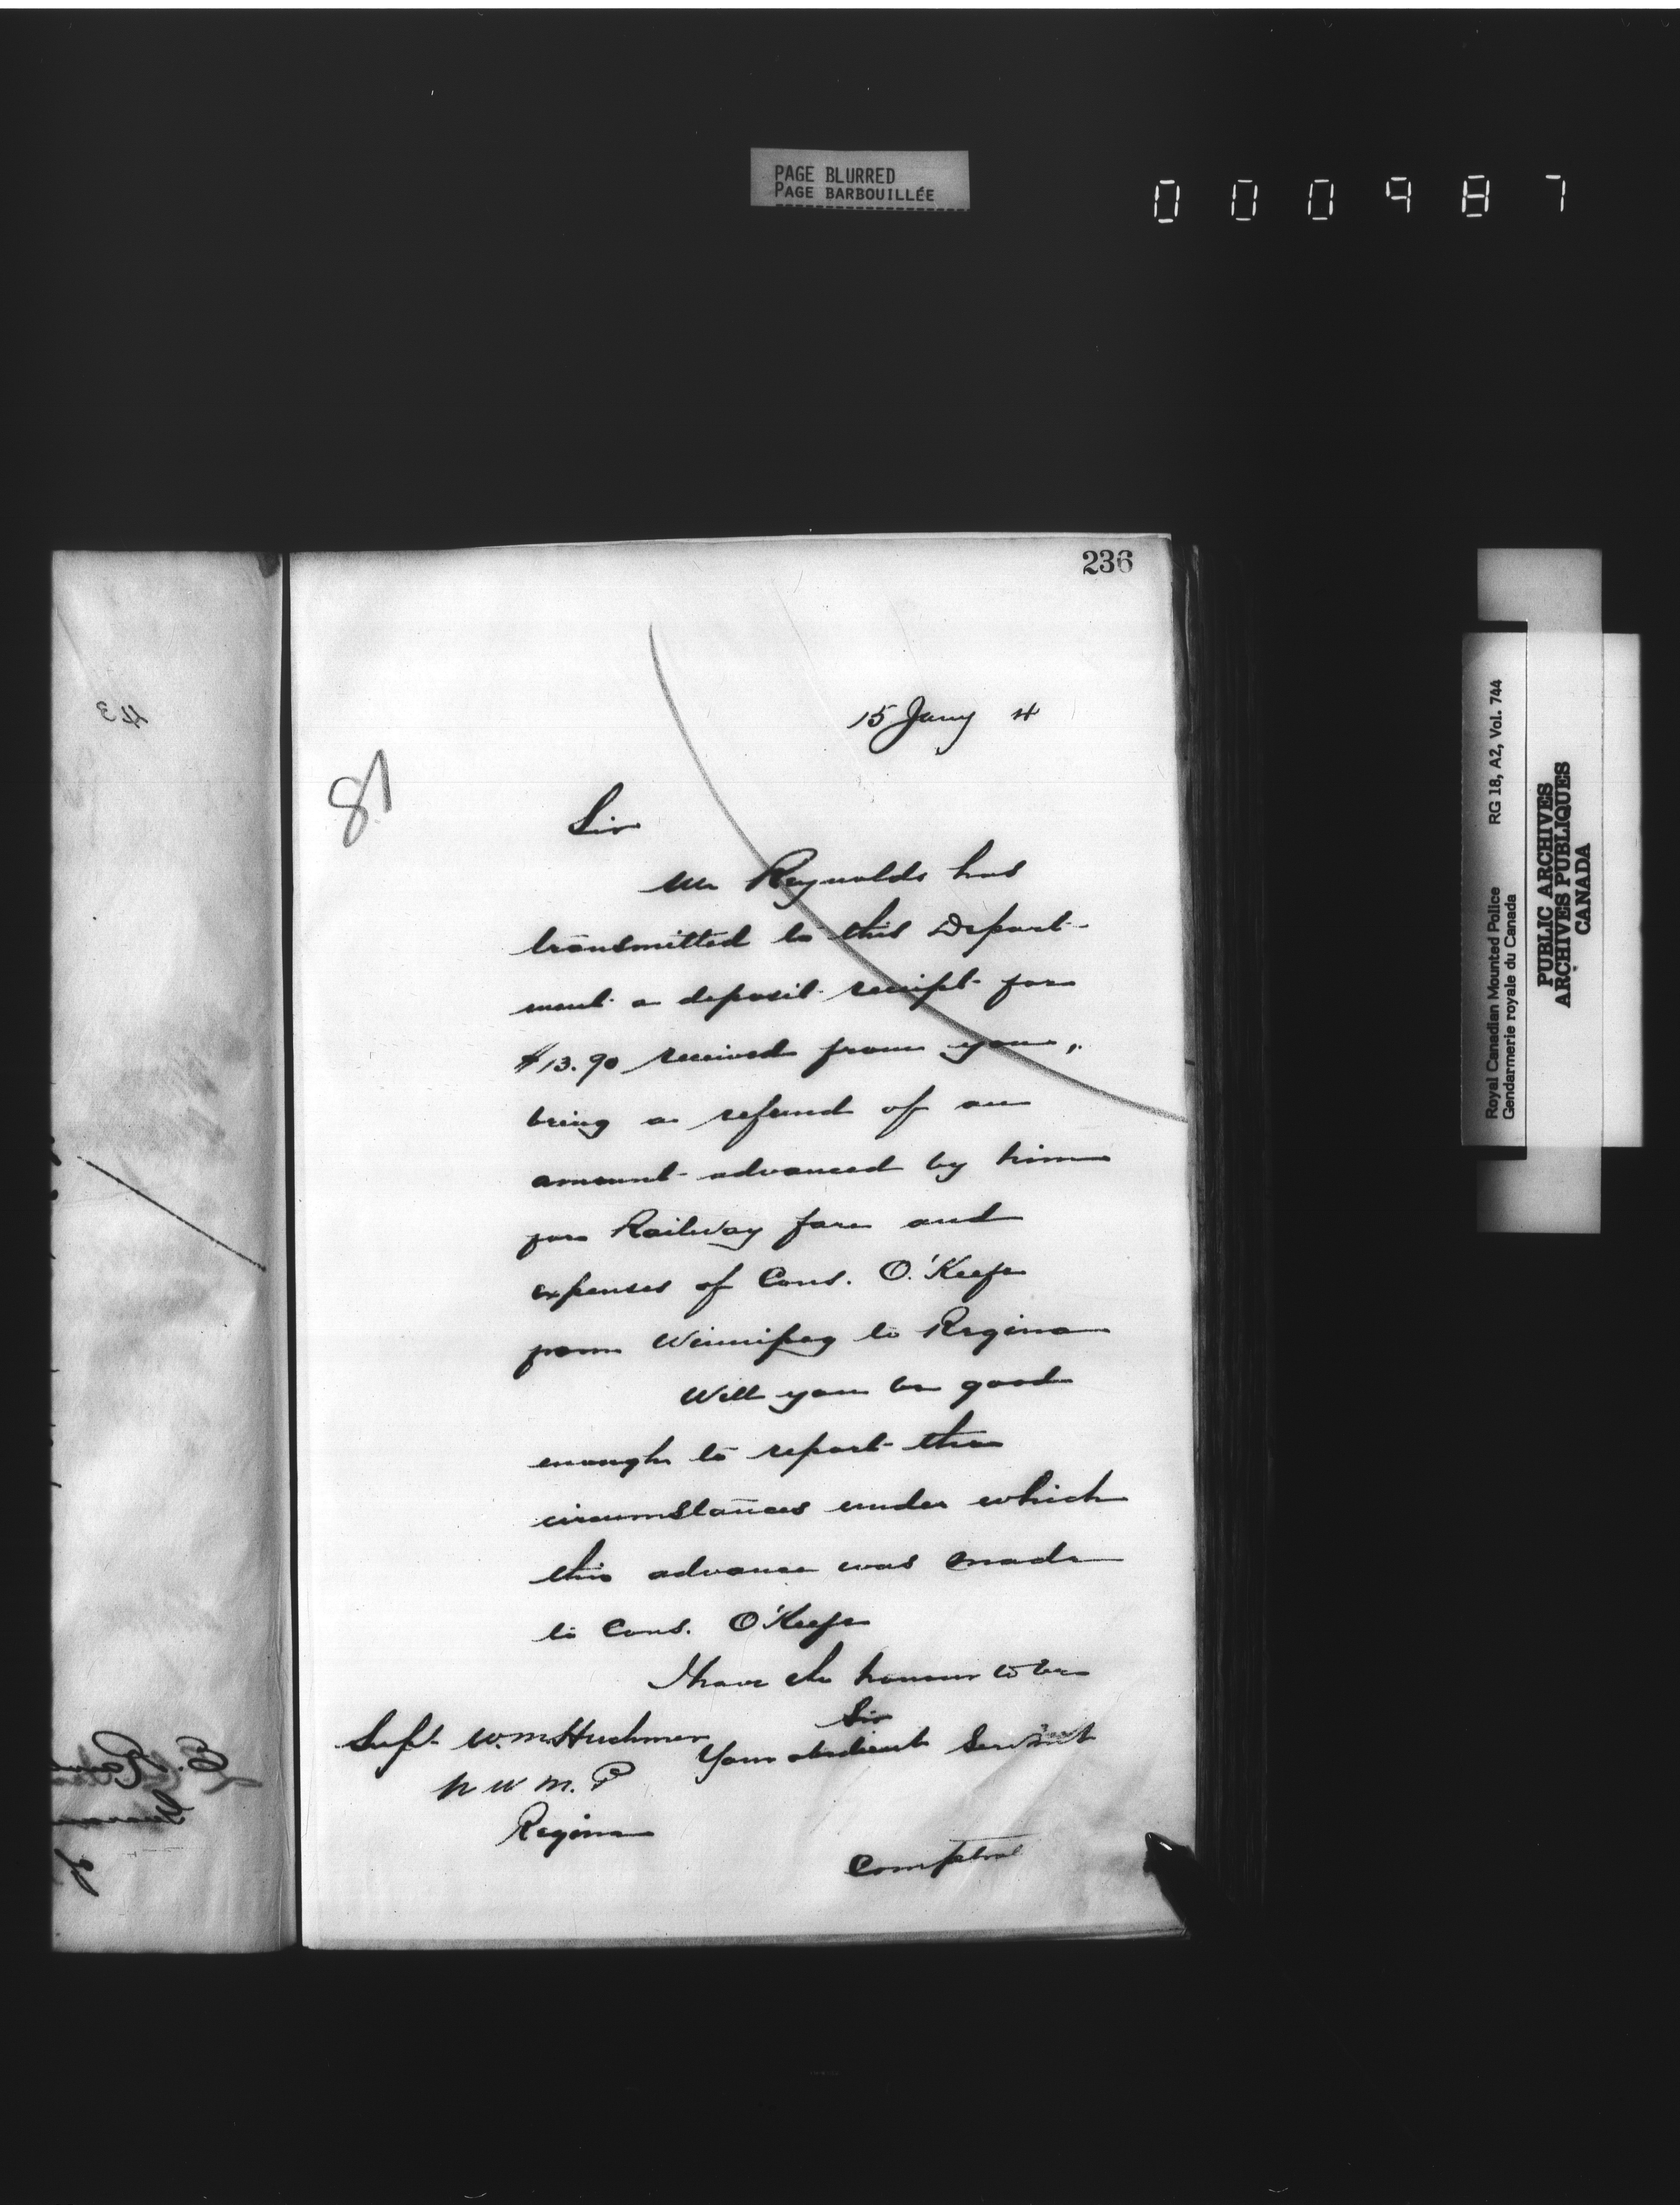 PAGE BLURRED
PAGE BARBOUILLÉE
000987
236
15 Jany 4
81
Sir
Mr Reynolds has
transmitted to this Depart-
ment a deposit receipt for
$13.90 received from you,
being a refund of an
amount advanced by him
for Railway fare and
expenses of Cons. O'Keefe
from Winnipeg to Regina
Will you be good
enough to report the
circumstances under which
this advance was made
to Cons. O'Keefe
I have the honour to be
Sir
Your obedient Servant
Supt. W.M. Huchmer
N W M. P
Regina
Comptrol
43
Royal Canadian Mounted Police RG 18, A2, Vol. 744
Gendarmerie royale du Canada
PUBLIC ARCHIVES
ARCHIVES PUBLIQUES
CANADA